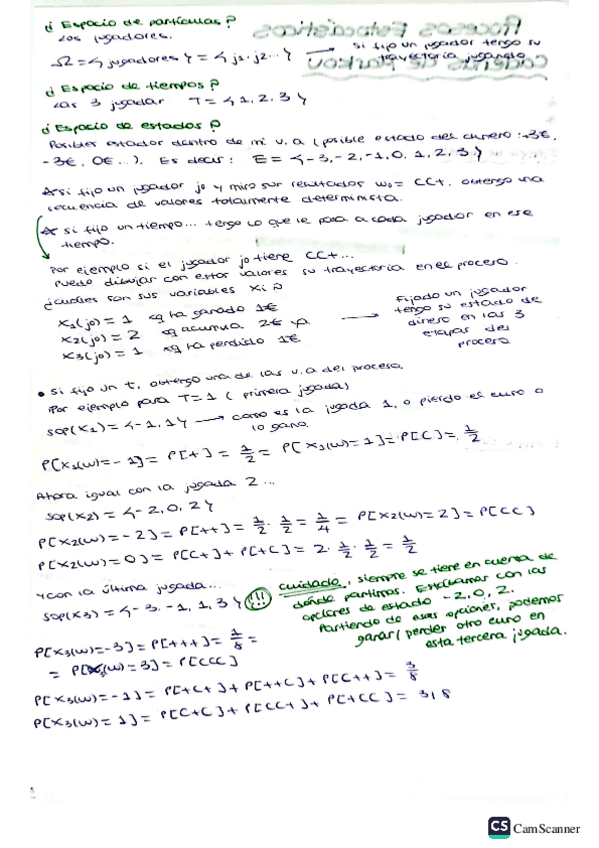 ¿Espacio de partículas?
Los jugadores.
Ω = {jugadores} = {j1, j2...} → si fijo un jugador tengo su trayectoria jugando
Procesos Estocásticos
Cadenas de Markov
¿Espacio de tiempos?
Las 3 jugadas T = {1, 2, 3}
¿Espacio de estados?
Posibles estados dentro de mi v.a (posible estado del dinero: +3€,
-3€, 0€...). Es decir: E = {-3, -2, -1, 0, 1, 2, 3}
* si fijo un jugador jo y miro sus resultados ω0 = CC+, obtengo una
secuencia de valores totalmente determinista.
* si fijo un tiempo... tengo lo que le pasa a cada jugador en ese
tiempo.
Por ejemplo si el jugador jo tiene CC+...
Puedo dibujar con estos valores su trayectoria en el proceso.
¿cuáles son sus variables Xi?
X1(jo) = 1 xq ha ganado 1€
X2(jo) = 2 xq acumula 2€ ya
X3(jo) = 1 xq ha perdido 1€
→ Fijado un jugador
tengo su estado de
dinero en las 3
etapas del
proceso
• Si fijo un t, obtengo una de las v.a del proceso.
Por ejemplo para T=1 (primera jugada)
sop(X1) = {-1, 1} → como es la jugada 1, o pierdo el euro o
lo gano.
P[X1(ω) = -1] = P[+] = 1/2 = P[X1(ω) = 1] = P[C] = 1/2
Ahora igual con la jugada 2...
sop(X2) = {-2, 0, 2}
P[X2(ω) = -2] = P[++] = 1/2 · 1/2 = 1/4 = P[X2(ω) = 2] = P[CC]
P[X2(ω) = 0] = P[C+] + P[+C] = 2 · 1/2 · 1/2 = 1/2
Y con la última jugada...
sop(X3) = {-3, -1, 1, 3} (!!!)
cuidado, siempre se tiene en cuenta de
dónde partimos. Estábamos con las
opciones de estado -2, 0, 2.
Partiendo de esas opciones, podemos
ganar/perder otro euro en
esta tercera jugada.
P[X3(ω) = -3] = P[+++] = 1/8 =
= P[X3(ω) = 3] = P[CCC]
P[X3(ω) = -1] = P[+C+] + P[++C] + P[C++] = 3/8
P[X3(ω) = 1] = P[C+C] + P[CC+] + P[+CC] = 3/8
CS CamScanner